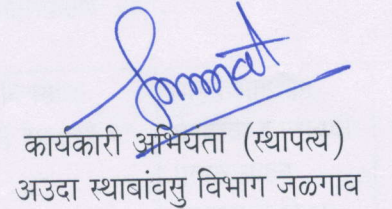 कार्यकारी अभियता (स्थापत्य)
अउदा स्थाबांवसु विभाग जळगाव